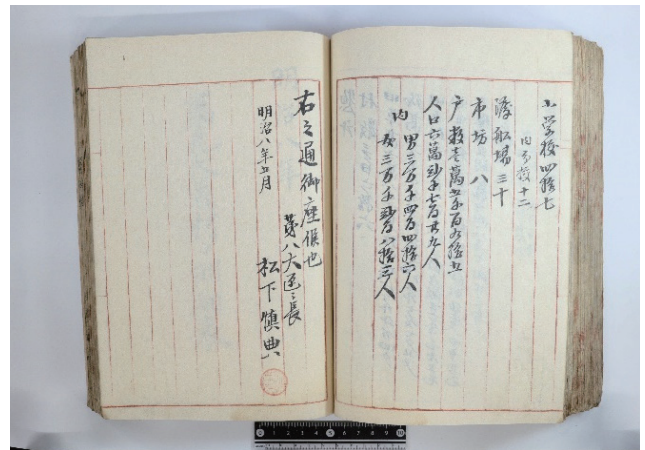 小学校四拾七
内分校十二
渡船場三十
市坊 八
戸数壱萬五千百九拾五
人口六萬弐千七百廿九人
内 男三万千四百四拾六人
女三万千弐百八拾三人
右之通御座候也
第八大区々長
明治八年五月
松下慎典